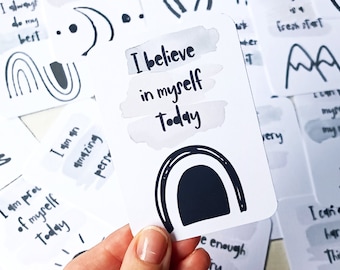 I always
do my
best
is a
fresh start
I believe
in myself
today
I am an
amazing
I am
of myself
today
enough
I can